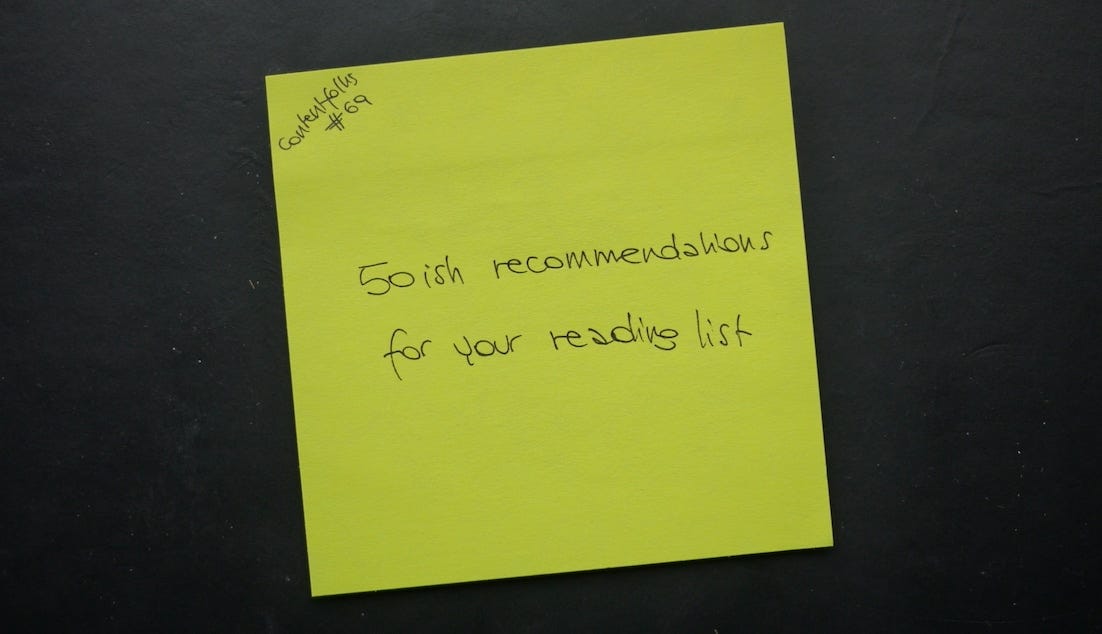 contentfolks
#69
50ish recommendations
for your reading list